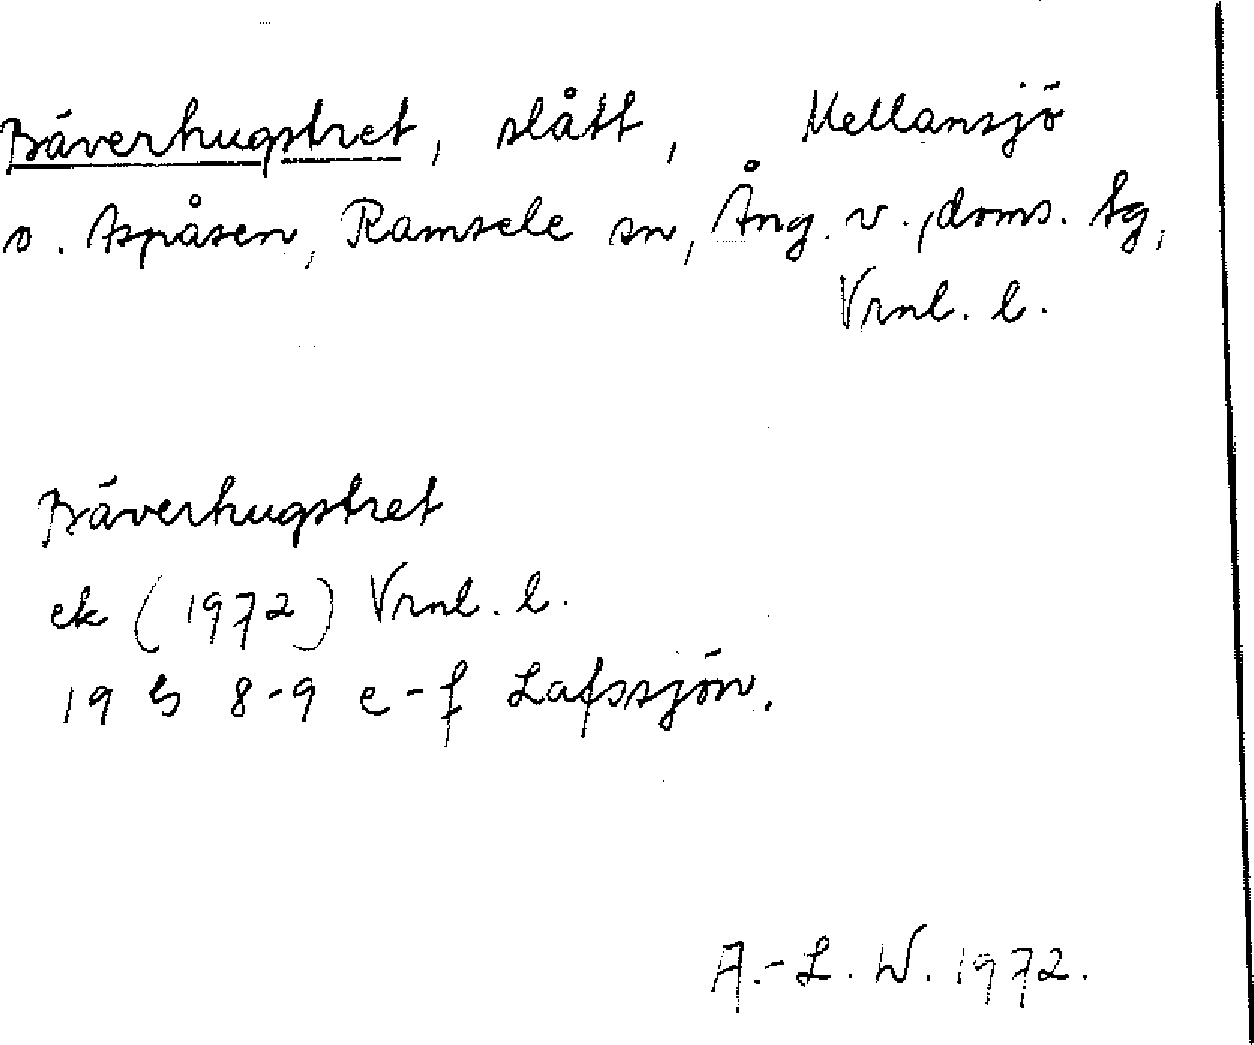 Bäverhugstret, slått, Mellansjö
o. Aspåsen, Ramsele sn, Ång. v., doms. tg,
Vrnl. l.
Bäverhugstret
ek (1972) Vrnl. l.
19 G 8-9 e-f Lafssjön.
A.-L. W. 1972.